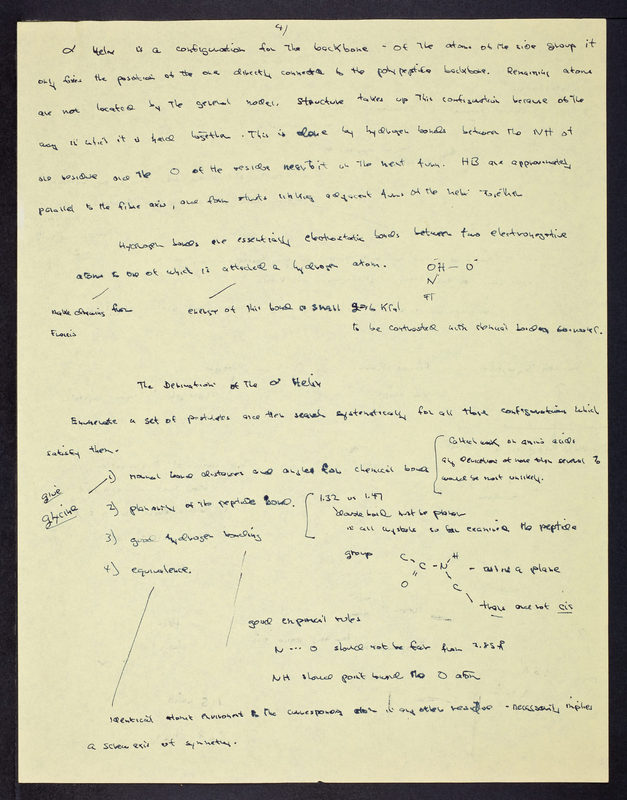 4/
α Helix is a configuration for the backbone - of the atoms of the side group it
only fixes the position of the one directly connected to the polypeptide backbone. Remaining atoms
are not located by the general model. Structure takes up this configuration because of the
way in which it is held together. This is done by hydrogen bonds between the NH of
one residue and the O of the residue next to it on the next turn. HB are approximately
parallel to the fibre axis, and form struts linking adjacent turns of the helix together
Hydrogen bonds are essentially electrostatic bonds between two electronegative
atoms to one of which is attached a hydrogen atom.
OH — O
N
make drawing from
Francis
energy of this bond is small
to be contrasted with chemical bonding
The Derivation of the α Helix
Enumerate a set of postulates and then search systematically for all those configurations which
satisfy them.
give
glycine
1) normal bond distances and angles for chemical bond
work on amino acids
any deviation of more than several %
would be most unlikely.
2) planarity of the peptide bond.
1.32 vs 1.47
double bond must be planar
in all crystals so far examined the peptide
group
C C N H
O C
- a plane
trans and not cis
3) good hydrogen bonding
4) equivalence.
good empirical rules
N --- O should not be far from 2.85 Å
NH should point toward the O atom
identical atomic environment to the corresponding atom in any other residue - necessarily implies
a screw axis of symmetry.